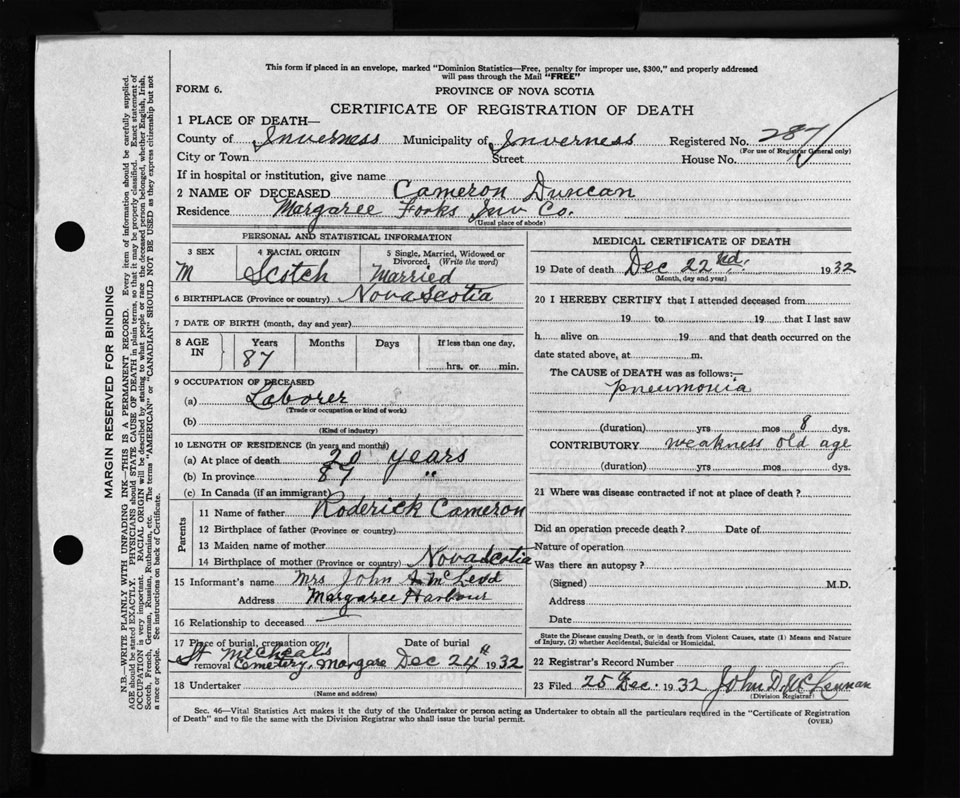 This form if placed in an envelope, marked "Dominion Statistics—Free, penalty for improper use, $300," and properly addressed
will pass through the Mail "FREE"
FORM 6.
PROVINCE OF NOVA SCOTIA
CERTIFICATE OF REGISTRATION OF DEATH
1 PLACE OF DEATH—
County of Inverness Municipality of Inverness Registered No. 287
(For use of Registrar General only)
City or Town Street House No.
If in hospital or institution, give name
2 NAME OF DECEASED Cameron Duncan
Residence Margaree Forks Inv Co.
(Usual place of abode)
PERSONAL AND STATISTICAL INFORMATION
3 SEX 4 RACIAL ORIGIN 5 Single, Married, Widowed or Divorced, (Write the word)
M Scotch Married
6 BIRTHPLACE (Province or country) Nova Scotia
7 DATE OF BIRTH (month, day and year)
8 AGE IN Years Months Days If less than one day,
87 hrs. or min.
9 OCCUPATION OF DECEASED
(a) Laborer
(Trade or occupation or kind of work)
(b)
(Kind of industry)
10 LENGTH OF RESIDENCE (in years and months)
(a) At place of death 20 years
(b) In province 87 "
(c) In Canada (if an immigrant)
Parents
11 Name of father Roderick Cameron
12 Birthplace of father (Province or country)
13 Maiden name of mother
14 Birthplace of mother (Province or country) Nova Scotia
15 Informant's name Mrs John McLeod
Address Margaree Harbour
16 Relationship to deceased
17 Place of burial, cremation or removal Date of burial
St Micheal's
Cemetery, Margare Dec 24th 1932
18 Undertaker
(Name and address)
MEDICAL CERTIFICATE OF DEATH
19 Date of death Dec 22nd. 1932
(Month, day and year)
20 I HEREBY CERTIFY that I attended deceased from
19 to 19 that I last saw
h alive on 19 and that death occurred on the
date stated above, at m.
The CAUSE of DEATH was as follows:—
pneumonia
(duration) yrs mos 8 dys.
CONTRIBUTORY weakness old age
(duration) yrs mos dys.
21 Where was disease contracted if not at place of death?
Did an operation precede death? Date of
Nature of operation
Was there an autopsy?
(Signed) M.D.
Address
Date
State the Disease causing Death, or in death from Violent Causes, state (1) Means and Nature
of Injury, (2) whether Accidental, Suicidal or Homicidal.
22 Registrar's Record Number
23 Filed 25 Dec. 1932 John D. McLennan
(Division Registrar)
Sec. 46—Vital Statistics Act makes it the duty of the Undertaker or person acting as Undertaker to obtain all the particulars required in the "Certificate of Registration
of Death" and to file the same with the Division Registrar who shall issue the burial permit.
(OVER)
MARGIN RESERVED FOR BINDING
N.B.—WRITE PLAINLY WITH UNFADING INK—THIS IS A PERMANENT RECORD. Every item of information should be carefully supplied.
AGE should be stated EXACTLY. PHYSICIANS should STATE CAUSE OF DEATH in plain terms, so that it may be properly classified. Exact statement of
OCCUPATION is very important. RACIAL ORIGIN will be described by stating to what people or race the deceased person belonged, whether English, Irish,
Scotch, French, German, Russian, Ruthenian, etc. The terms "AMERICAN" or "CANADIAN" SHOULD NOT BE USED as they express citizenship but not
a race or people. See instructions on back of Certificate.